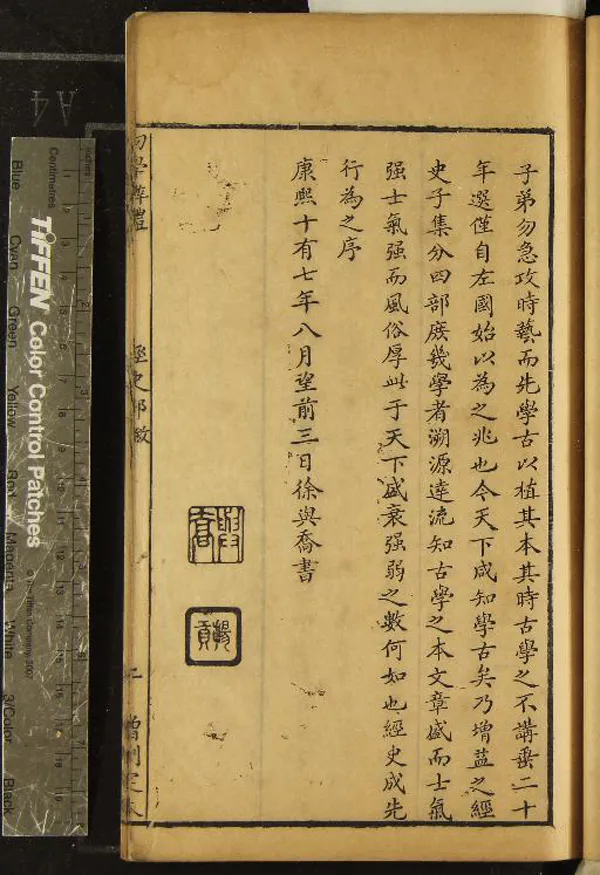 子弟勿急攻時藝而先學古以植其本其時古學之不講垂二十
年選僅自左國始以為之兆也今天下咸知學古矣乃增益之經
史子集分四部庶幾學者溯源達流知古學之本文章盛而士氣
强士氣强而風俗厚此于天下盛衰强弱之數何如也經史成先
行為之序
康熙十有七年八月望前三日徐與喬書
揚貢
初學辨體
經史部敘
二
增刪定本
A4
TIFFEN Color Control Patches
© The Tiffen Company, 2007
Centimetres
Inches
Blue
Cyan
Green
Yellow
Red
Magenta
White
3/Color
Black